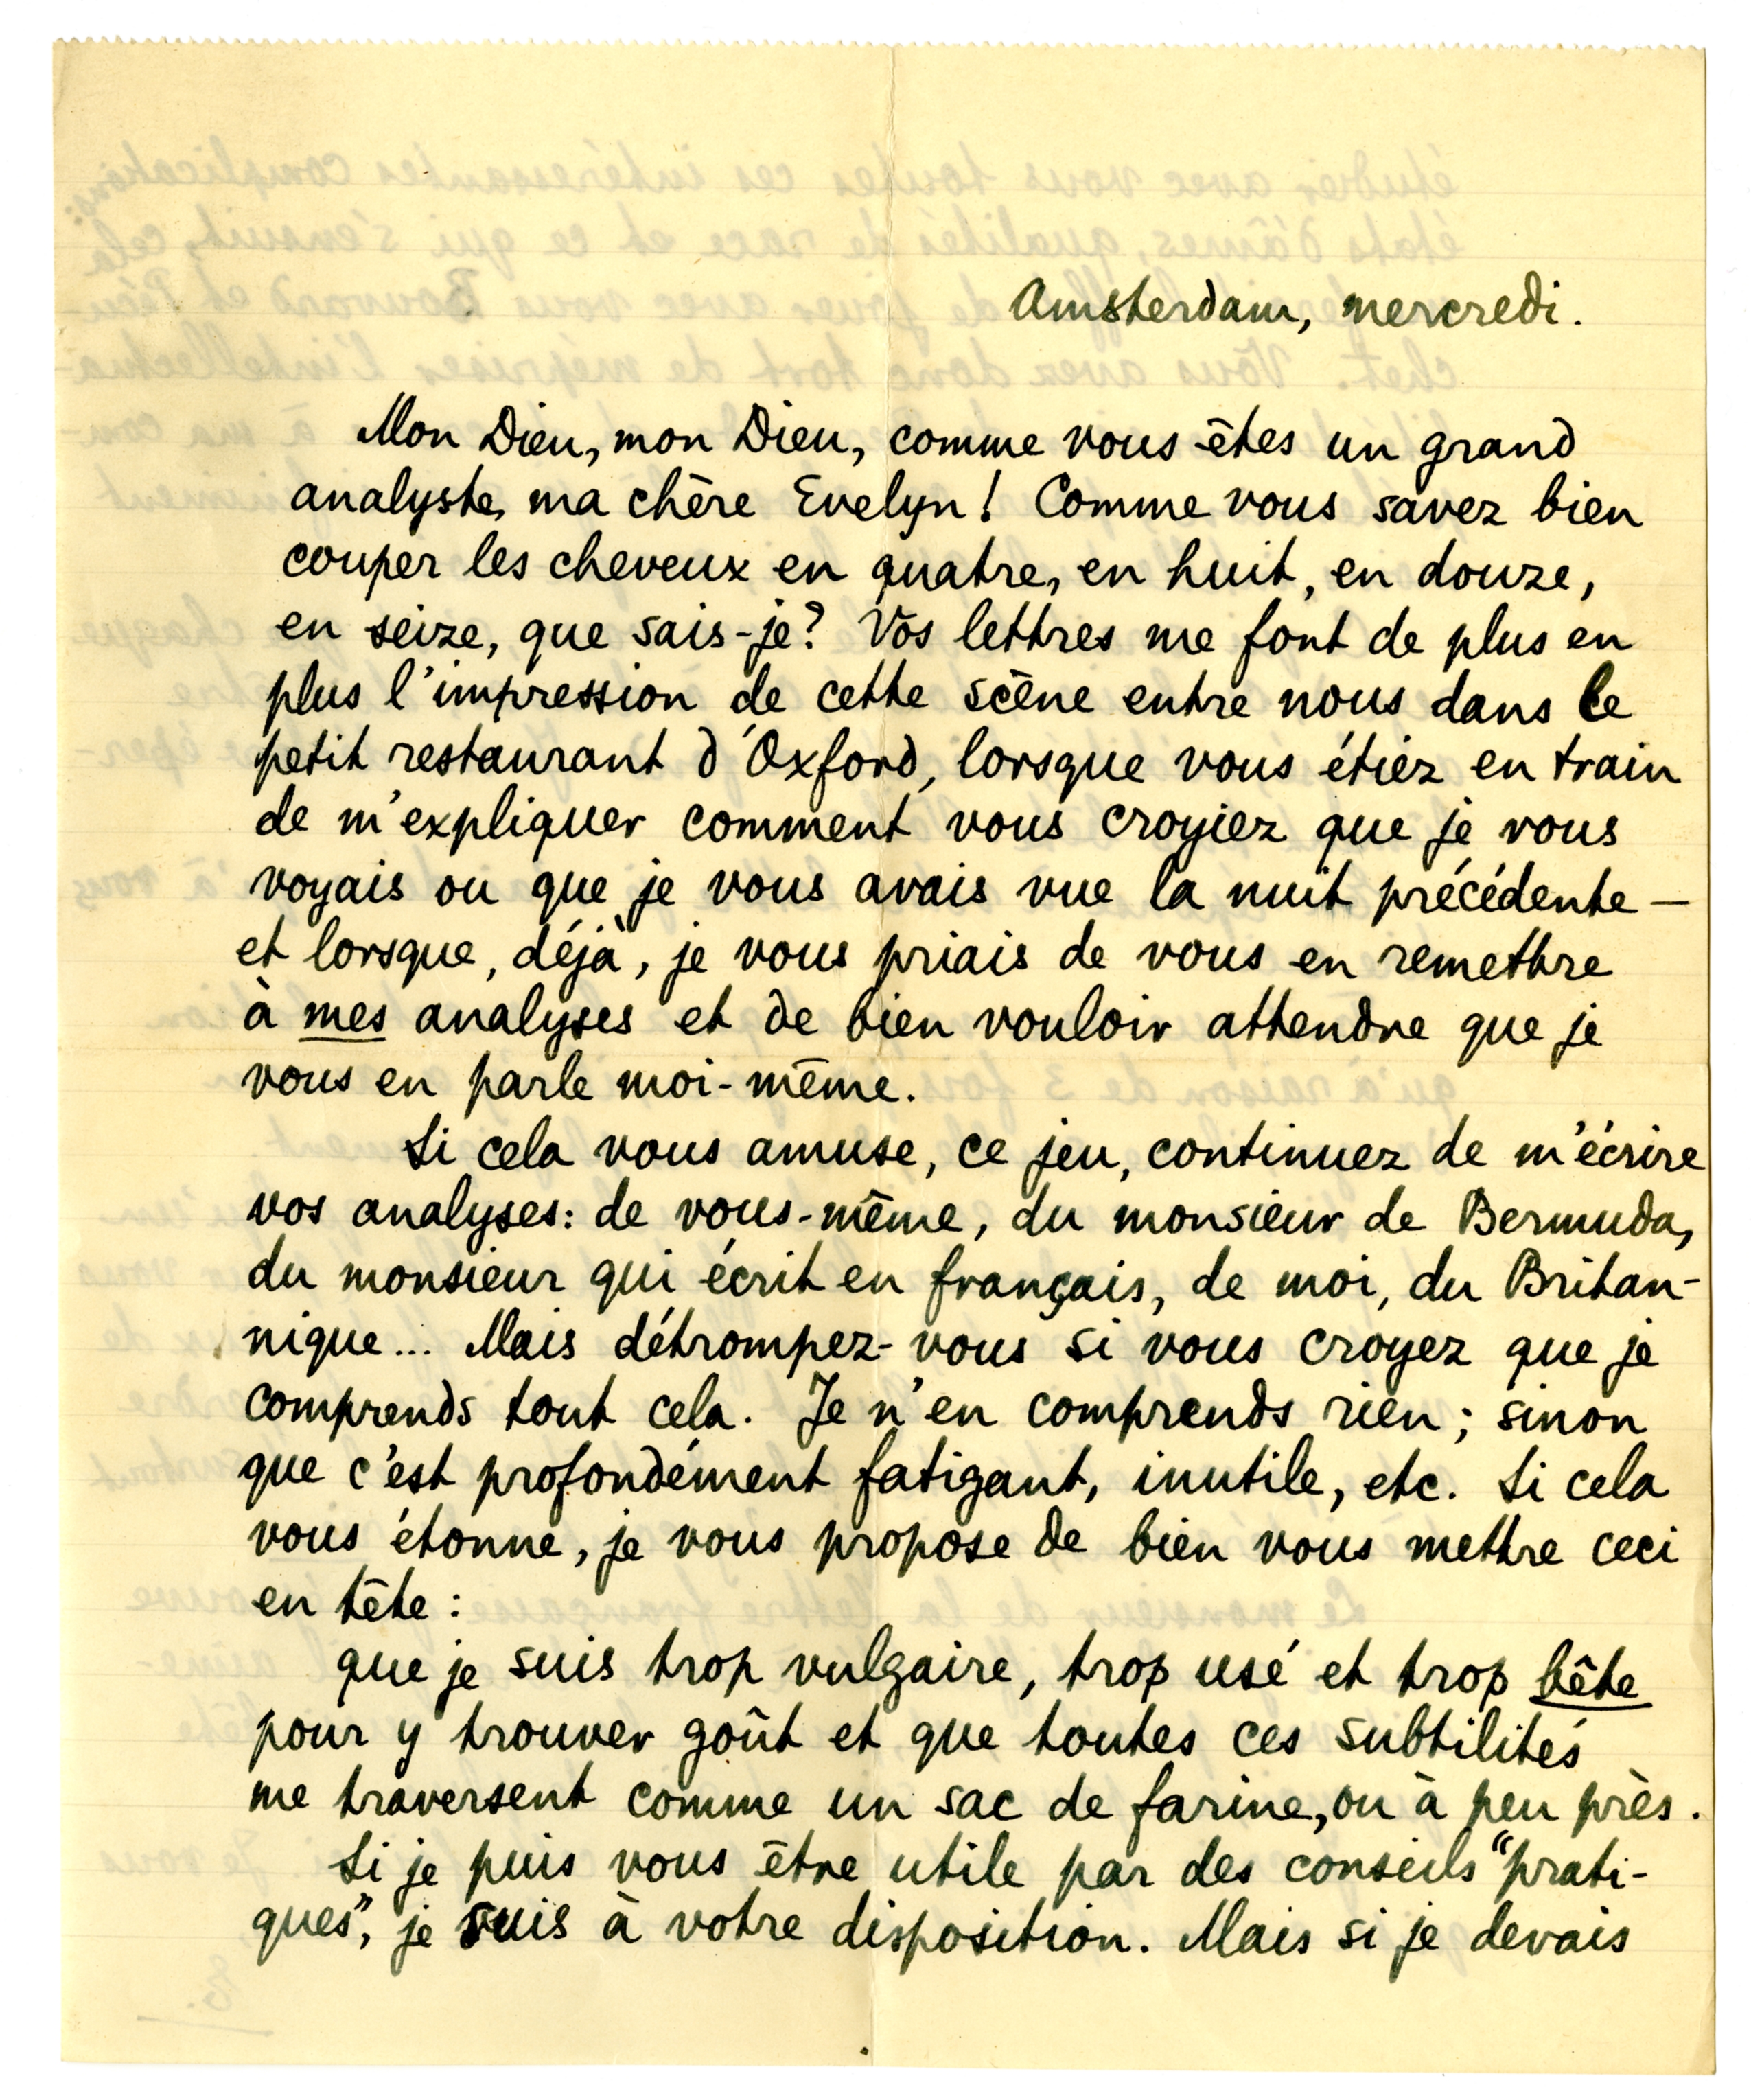 Amsterdam, mercredi.
Mon Dieu, mon Dieu, comme vous êtes un grand
analyste, ma chère Evelyn! Comme vous savez bien
couper les cheveux en quatre, en huit, en douze,
en seize, que sais-je? Vos lettres me font de plus en
plus l'impression de cette scène entre nous dans le
petit restaurant d'Oxford, lorsque vous étiez en train
de m'expliquer comment vous croyiez que je vous
voyais ou que je vous avais vue la nuit précédente —
et lorsque, déjà, je vous priais de vous en remettre
à mes analyses et de bien vouloir attendre que je
vous en parle moi-même.
Si cela vous amuse, ce jeu, continuez de m'écrire
vos analyses: de vous-même, du monsieur de Bermuda,
du monsieur qui écrit en français, de moi, du Britan-
nique... Mais détrompez-vous si vous croyez que je
comprends tout cela. Je n'en comprends rien; sinon
que c'est profondément fatigant, inutile, etc. Si cela
vous étonne, je vous propose de bien vous mettre ceci
en tête:
que je suis trop vulgaire, trop usé et trop bête
pour y trouver goût et que toutes ces subtilités
me traversent comme un sac de farine, ou à peu près.
Si je puis vous être utile par des conseils "prati-
ques", je suis à votre disposition. Mais si je devais